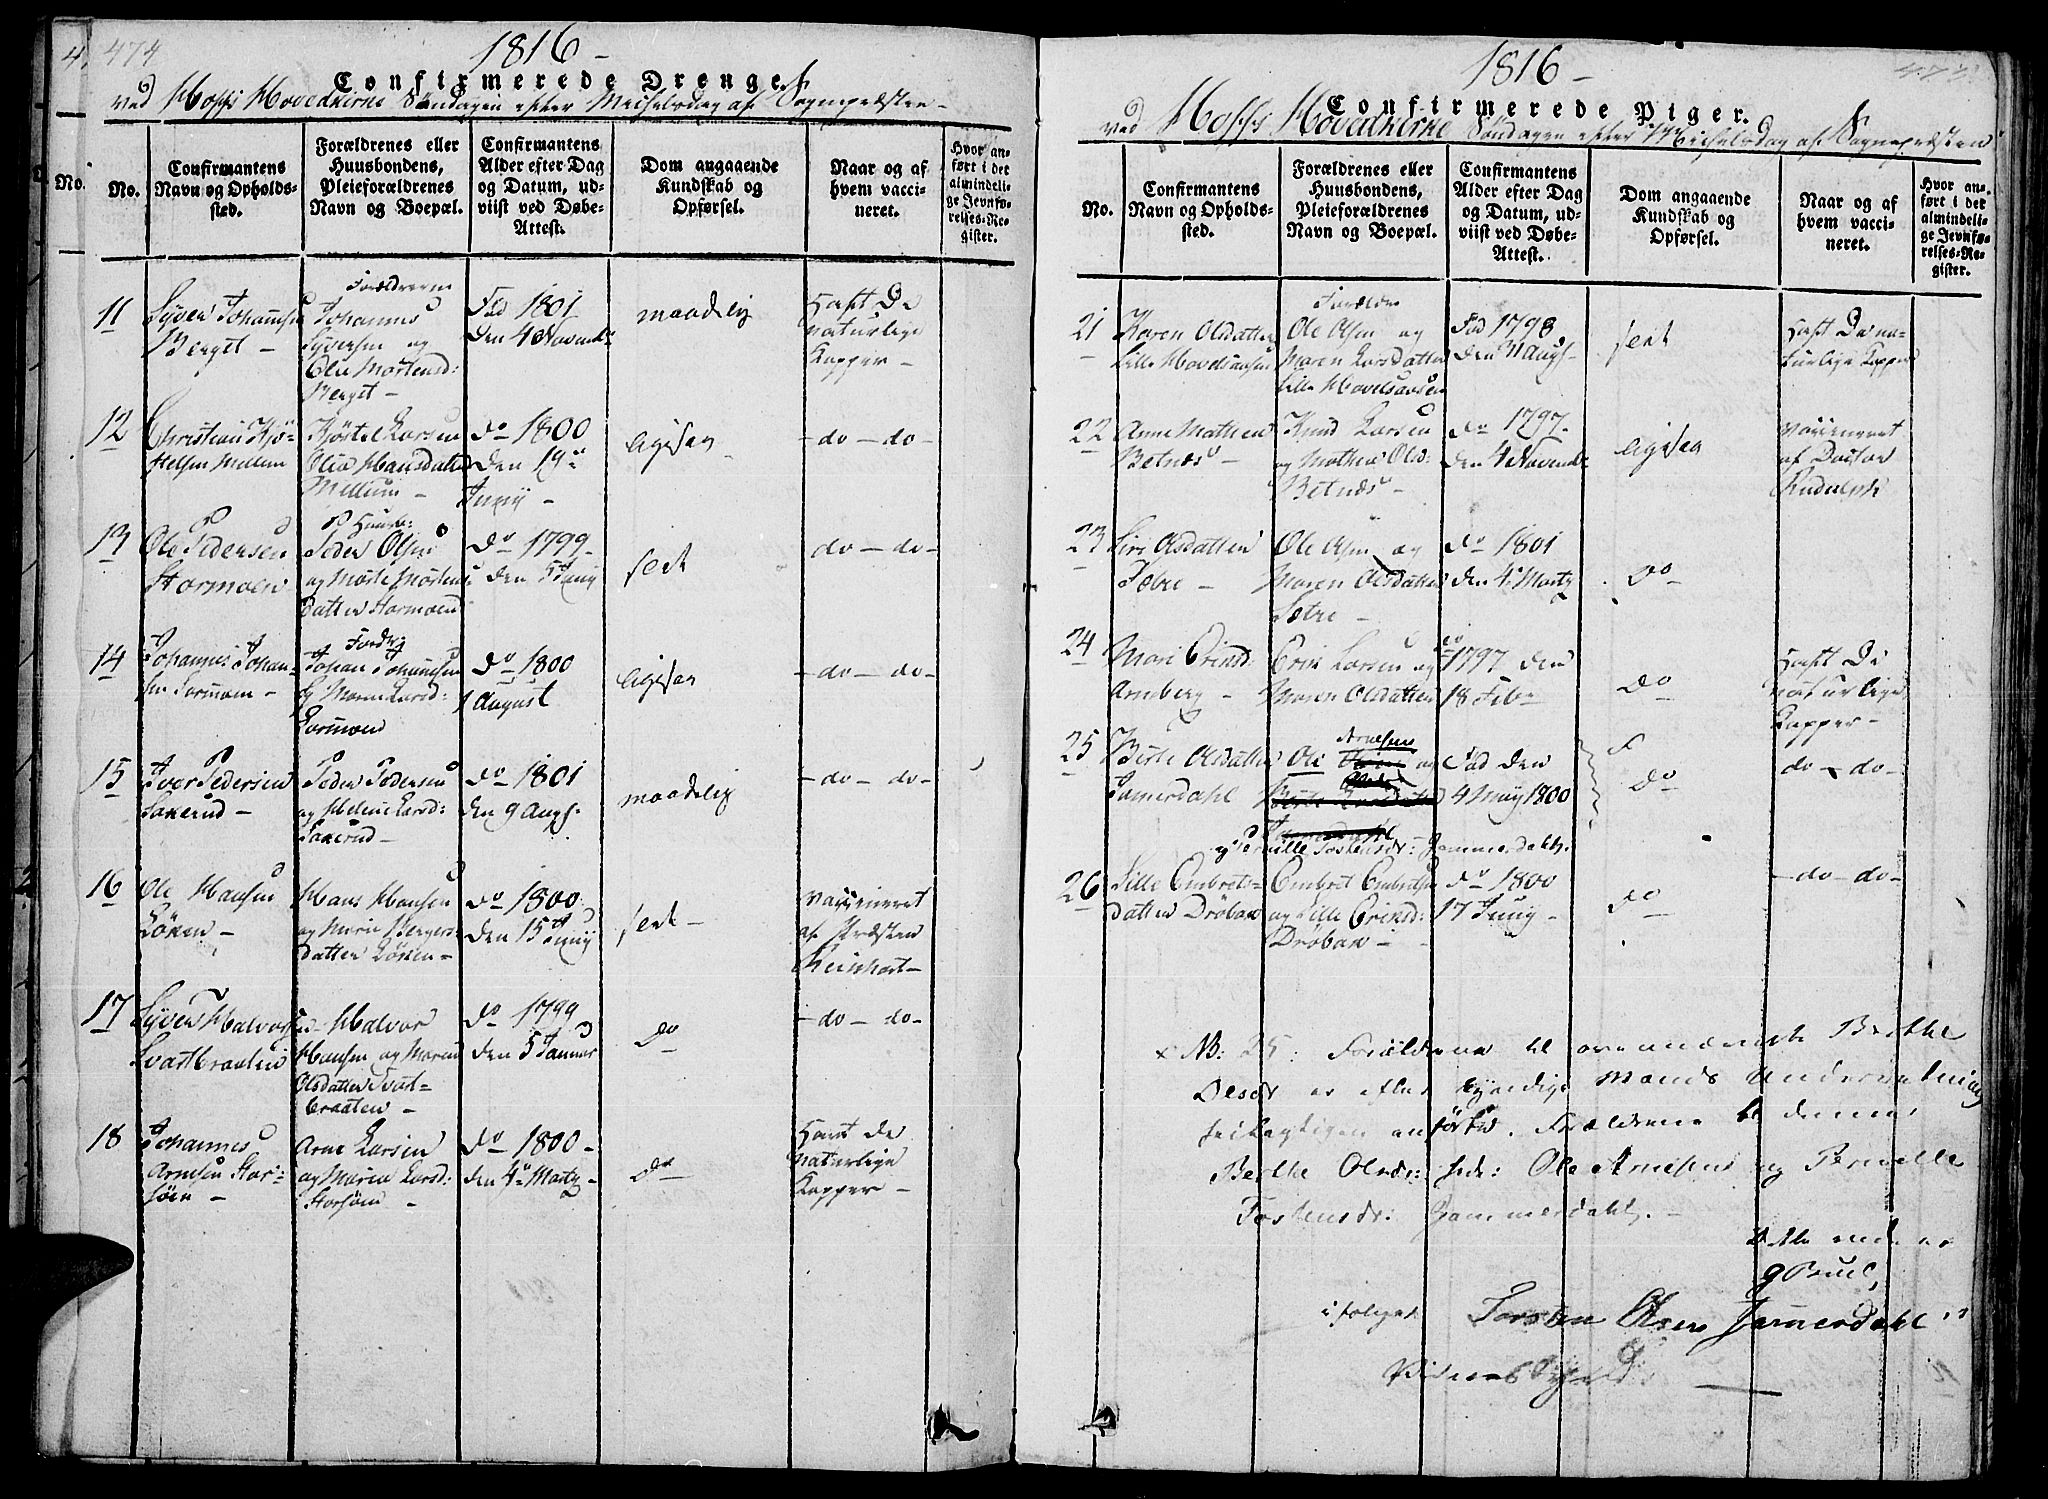 474
1816 –
Confirmerede Drenge.
ved Hoffs Hovedkirke Søndagen efter Michelsdag af Sognepræsten –
No.
No.
Confirmantens Navn og Opholds-sted.
Forældrenes eller Huusbondens, Pleieforældrenes Navn og Boepæl.
Confirmantens Alder efter Dag og Datum, ud-viist ved Døbe-Attest.
Dom angaaende Kundskab og Opførsel.
Naar og af hvem vacci-neret.
Hvor an-ført i det almindeli-ge Jevnfø-relses-Re-gister.
11
Syver Johannesen
Berget –
Forældrerne
Johannes
Syversen og
Olia Mortensd:
Berget –
Fød 1801
den 4 Novemb:
maadelig
Havt De
naturlige
Kopper –
12
Christian Kjø-
stelsen Mellem
Kjøstel Larsen
Olia Hansdatter
Mellum –
do 1800
den 19de
Junij –
ligesaa
– do – do –
13
Ole Pedersen
Stormoen
Peder Olsen
og Marte Mortens
datter Stormoen
do 1799
den 5 Junij
slet
do – do –
14
Johannes Johan-
sen Lormoen –
Johan Johannesen
og Maren Larsd:
Lormoen
do 1800
1 August
ligesaa
– do – do –
15
Iver Pedersen
Sakerud –
Peder Pedersen
og Helene Larsd:
Sakerud –
do 1801
den 9 Augs:
maadelig
– do – do –
16
Ole Hansen
Løken –
Hans Hansen
og Marie Bergers-
datter Løken –
do 1800
den 15 Junij
slet –
Vaccineret
af Præsten
Reinhart –
17
Syver Halvorsen
Svartbraaten
Halvor
Hansen og Maren
Olsdatter Svart-
braaten –
do 1799
den 5 Januar
do
– do – do –
18
Johannes
Arnesen Stor-
søen –
Arne Larsen
og Maria Larsd:
Storsøen –
do 1800 –
den 4de Martz –
do
Havt de
Naturlige
Kopper –
1816 –
Confirmerede Piger.
ved Hoffs Hovedkirke Søndagen efter Michelsdag af Sognepræsten
No.
Confirmantens Navn og Opholds-sted.
Forældrenes eller Huusbondens, Pleieforældrenes Navn og Boepæl.
Confirmantens Alder efter Dag og Datum, ud-viist ved Døbe-Attest.
Dom angaaende Kundskab og Opførsel.
Naar og af hvem vacci-neret.
Hvor an-ført i det almindeli-ge Jevnfø-relses-Re-gister.
21
Karen Olsdatter
Lille Hovelsaasen
Forældre
Ole Olsen og
Maren Larsdatter
Lille Hovelsaasen
Fød 1798
den 31 Augs –
slet
Havt De na-
turlige Kopper
22
Anne Mathea
Betnæs –
Knud Larsen
og Mathea Olsd:
Betnæs –
do 1797
den 4 Novemb:
ligesaa
Vaccineret
af Doctor
Rudolph
23
Siri Olsdatter
Sætre –
Ole Olsen og
Maren Olsdatter
Sætre –
do 1801
den 4 Martz
do
24
Mari Eriksd:
Arneberg –
Erik Larsen og
Maren Olsdatter
do 1797 den
18 Feb –
do
Havt De
naturlige
Kopper –
25
Berte Olsdatter
Jamerdahl
Arnesen
Ole og
og Pernille Tostensdr: Jammerdahl.
Fød den
4 Maij 1800
do
do – do –
26
Sille Embrets-
datter Drøbak
Embret Embretsen
og Sille Eriksd:
Drøbak –
do 1800
17 Junij –
do
– do – do –
x NB: 25: Forældrene til ovennævnte Berthe
Olsdr er efter kyndige Mænds Underretning
feilagtigen anførte. Forældrene til denne
Berthe Olsdr: hede: Ole Arnesen og Pernille
Tostensdr: Jammerdahl. –
i følge
Torsten Olsen Jammerdahl